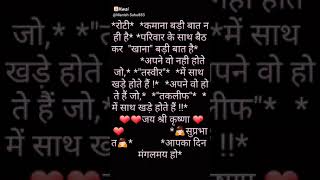 Kavi
@Manish Sahu853
*रोटी* *कमाना बड़ी बात न
ही है* *परिवार के साथ बैठ
कर "खाना" बड़ी बात है*
*अपने वो नही होते
जो,* *"तस्वीर"* *में साथ
खड़े होते हैं !* *अपने वो हो
ते हैं जो,* *"तकलीफ"* *
में साथ खड़े होते हैं !!*
❤️❤️जय श्री कृष्णा ❤️
❤️ *🙏सुप्रभा
त🙏* *आपका दिन
मंगलमय हो*